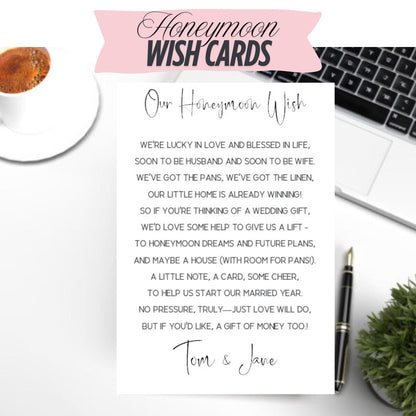 Honeymoon
WISH CARDS
Our Honeymoon Wish
WE'RE LUCKY IN LOVE AND BLESSED IN LIFE,
SOON TO BE HUSBAND AND SOON TO BE WIFE.
WE'VE GOT THE PANS, WE'VE GOT THE LINEN,
OUR LITTLE HOME IS ALREADY WINNING!
SO IF YOU'RE THINKING OF A WEDDING GIFT,
WE'D LOVE SOME HELP TO GIVE US A LIFT -
TO HONEYMOON DREAMS AND FUTURE PLANS,
AND MAYBE A HOUSE (WITH ROOM FOR PANS!).
A LITTLE NOTE, A CARD, SOME CHEER,
TO HELP US START OUR MARRIED YEAR.
NO PRESSURE, TRULY—JUST LOVE WILL DO,
BUT IF YOU'D LIKE, A GIFT OF MONEY TOO!
Tom & Jane